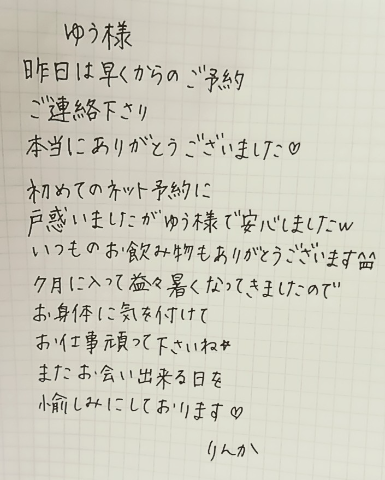 ゆう様
昨日は早くからのご予約
ご連絡下さり
本当にありがとうございました♡
初めてのネット予約に
戸惑いましたがゆう様で安心しましたw
いつものお飲み物もありがとうございます^^
7月に入って益々暑くなってきましたので
お身体に気を付けて
お仕事頑って下さいね★
またお会い出来る日を
愉しみにしております♡
りんか